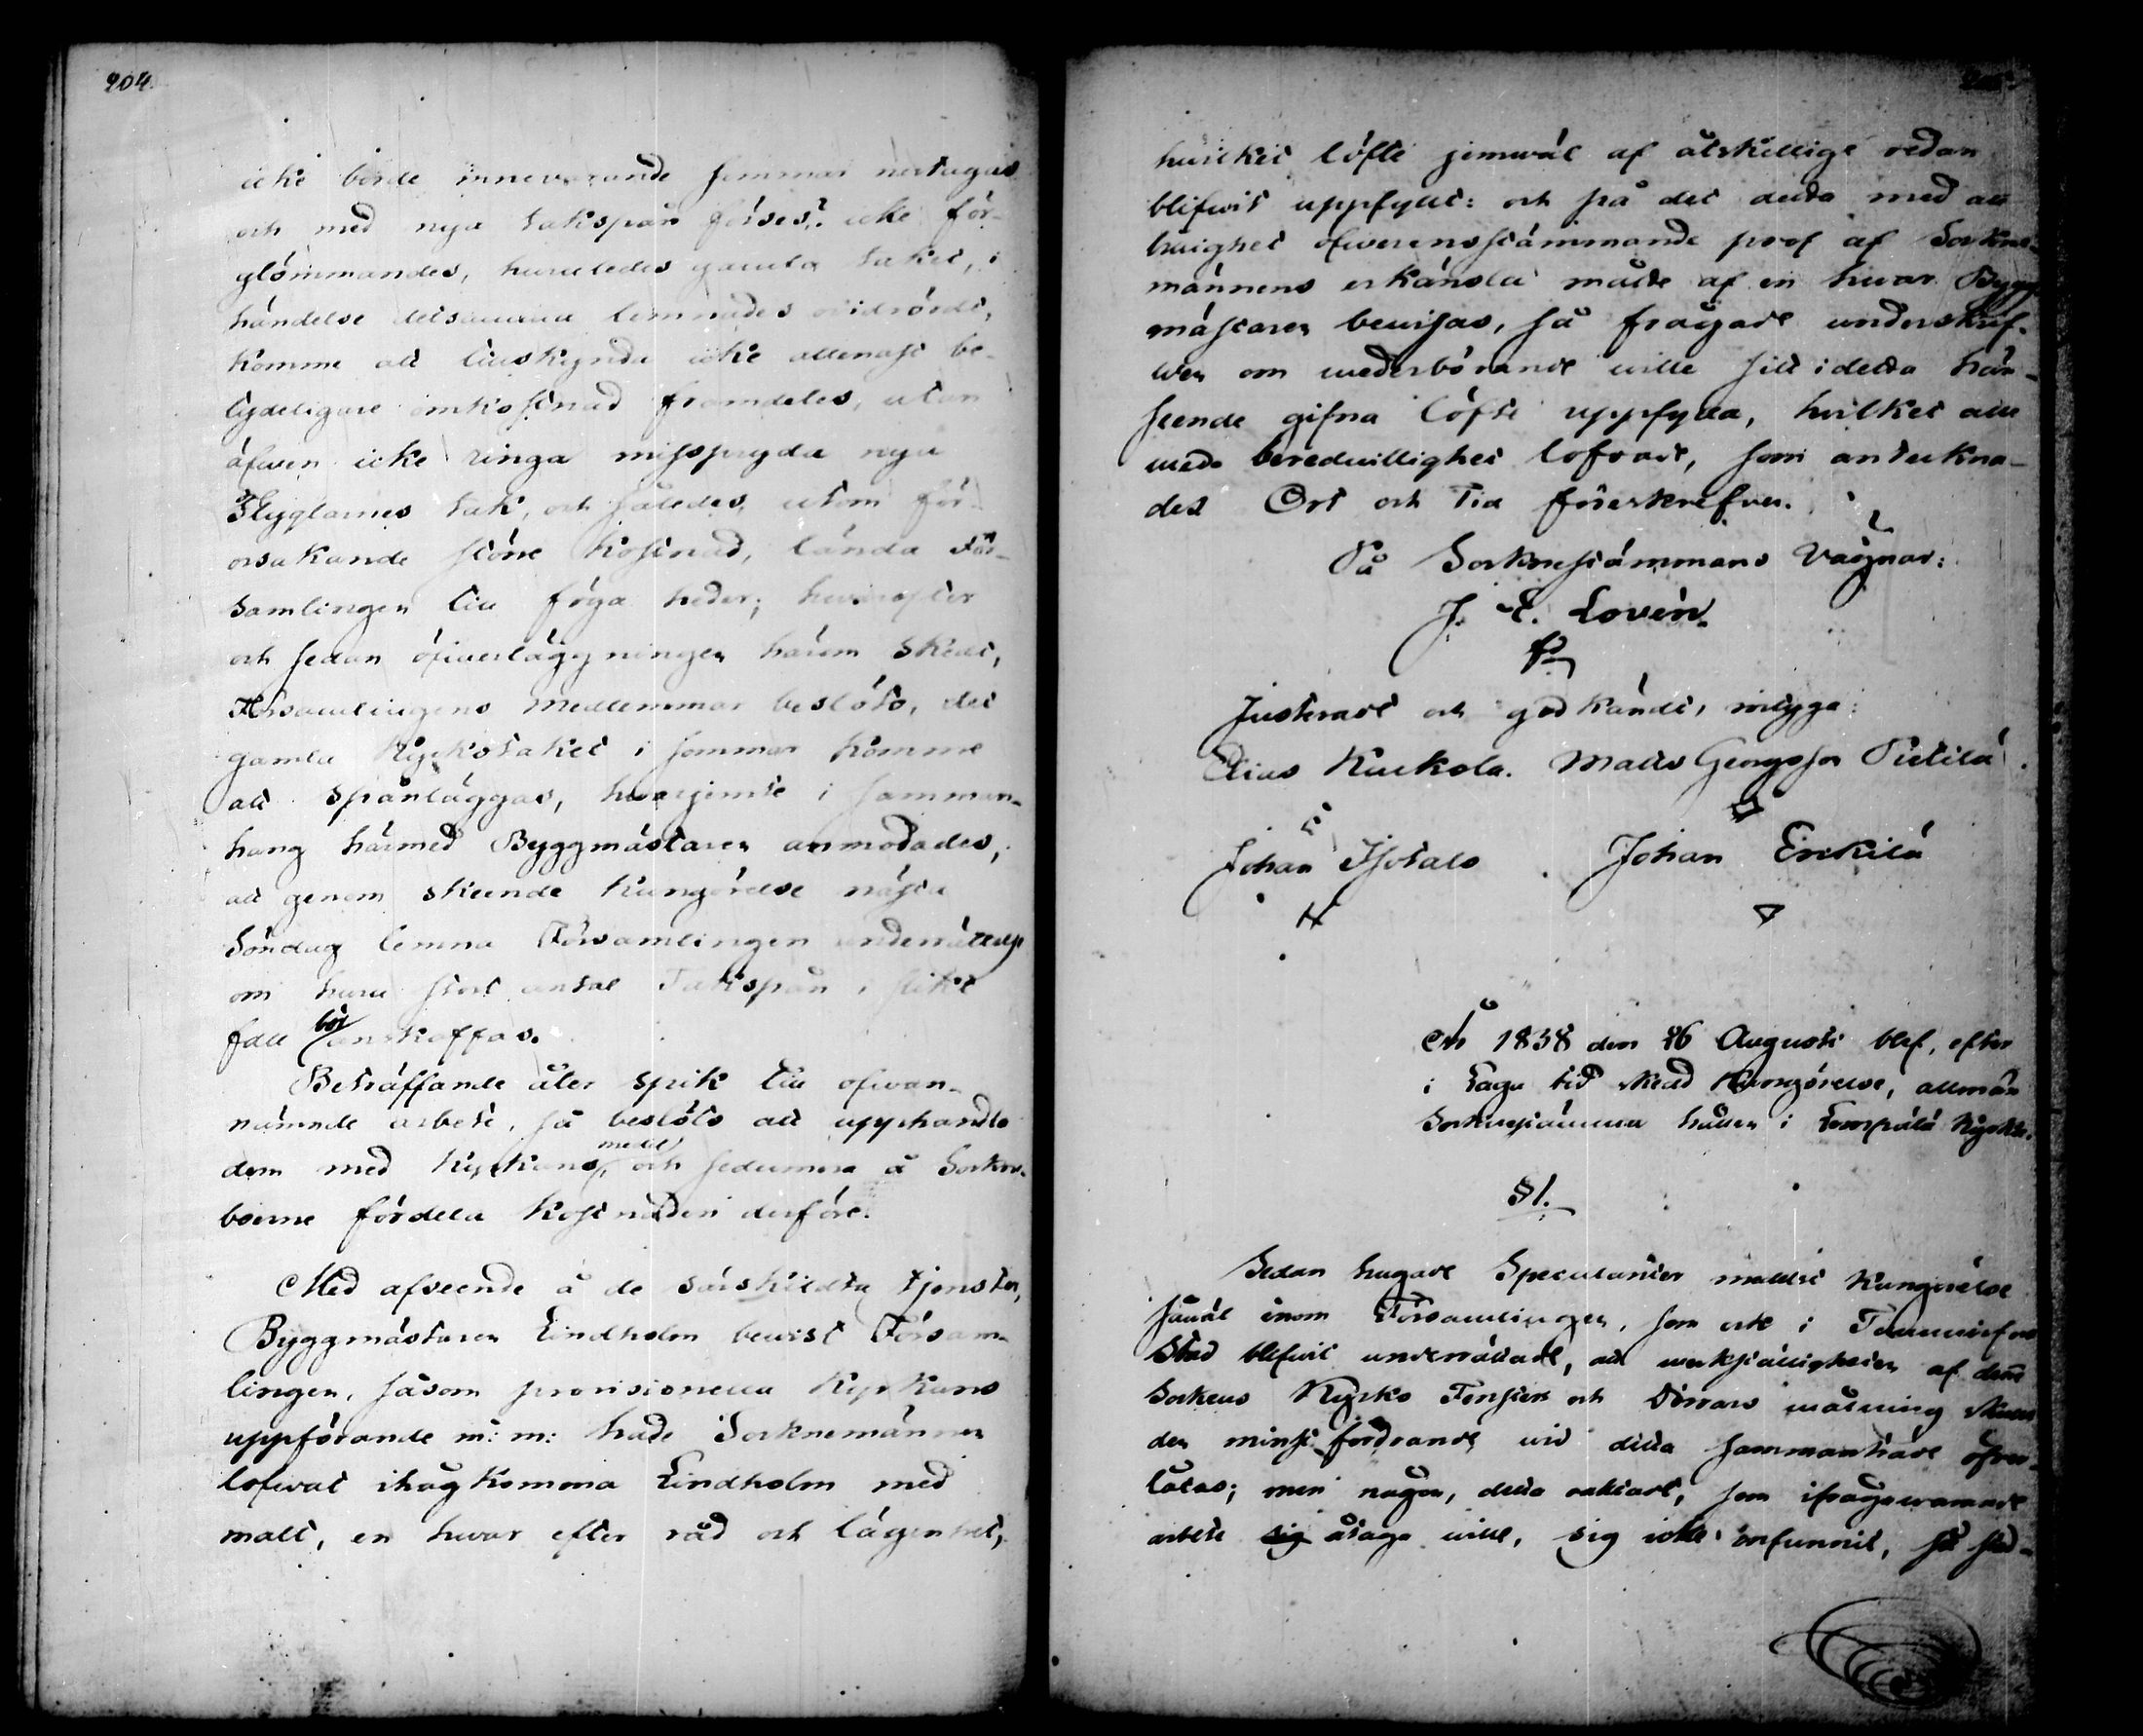 204.
icke borde innevarande sommar nertagas
och med nya takspån förses? icke för-
glömmandes, huruledes gamla taket, i
händelse detsamma lemnades orördt,
komme att tillskynda icke allenast be-
tydeligare omkostnad framdeles, utan
äfwen icke ringa misspryda nya
Flyglarnes tak, och således, utom för-
orsakande större kostnad, lända För-
samlingen till föga heder; hwarefter
och sedan öfwerläggningen härom skedt,
Församlingens medlemmar beslöto, det
gamla Kyrkotaket i sommar komme
att spånläggas, hwarjemte i samman-
hang härmed Byggmästaren anmodades,
att genom skeende Kungörelse nästa
Söndag lemna Församlingen underrättelse
om huru stort antal Takspån i slikt
fall bör anskaffas.
Beträffande åter spik till ofwan-
nämnde arbete, så beslöts att upphandla
dem med Kyrkans medel och sedermera å Sockne-
boerne fördela kostnaden derföre.
Med afseende å de särskildta tjenster,
Byggmästaren Lindholm bewist Försam-
lingen, såsom provisionella Kyrkans
uppförande m: m: hade Socknemännen
lofwat ihågkomma Lindholm med
malt, en hwar efter råd och lägenhet,
hwilket löfte jemwäl af åtskillige redan
blifwit uppfyldt: och på det detta med all
huighet öfwerensstämmande prof af Sockne-
männens erkänsla måtte af en hwar Bygg-
mästaren bewisas, så frågade underskrif-
wen om wederbörande wille sitt i detta hän-
seende gifna löfte uppfylla, hvilket alla
med beredwillighet lofvade, som anteckna-
des Ort och Tid förreskrefven.
På Socknestämmans vägnar:
J. E. Lovén.
Justeradt och godkändt, intyga:
Elias Kuckola. Matts Georgsson Pietilä.
Johan Isotalo. Johan Erickilä
År 1838 den 26 Augusti blef, efter
i Laga tid skedd Kungörelse, allmän
Socknestämma hållen i Lempälä Kyrka.
§ 1.
Sedan hugade Speculanter medelst Kungörelse
såwäl inom Församlingen, som ock i Tammerfors
Stad blifwit underrättade, att werkställigheten af denne
Sockens Kyrko Fenster och Dörrars målning skulle
den minst fordrande wid detta sammanträde öfwer-
låtas; men någon, detta oaktadt, som ifrågawarande
arbete sig åtaga wille, sig icke infunnit, så stad-